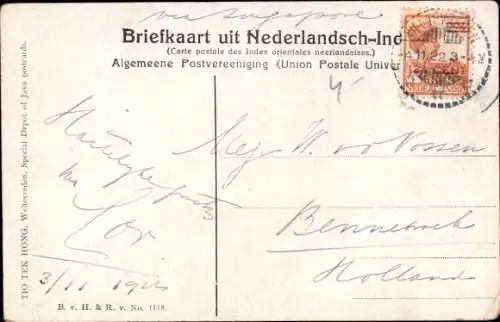 via Singapore
Briefkaart uit Nederlandsch-Ind
(Carte postale des Indes orientales néerlandaises.)
Algemeene Postvereeniging (Union Postale Univer
.11.22.3-
4
Hartelijke groeten
van
Cor.
3/11 1922
Mej. W. v. Vossen
Bennebroek
Holland
TIO TEK HONG, Weltevreden, Special Depot of Java postcards.
B. v. H. & R. v. No.